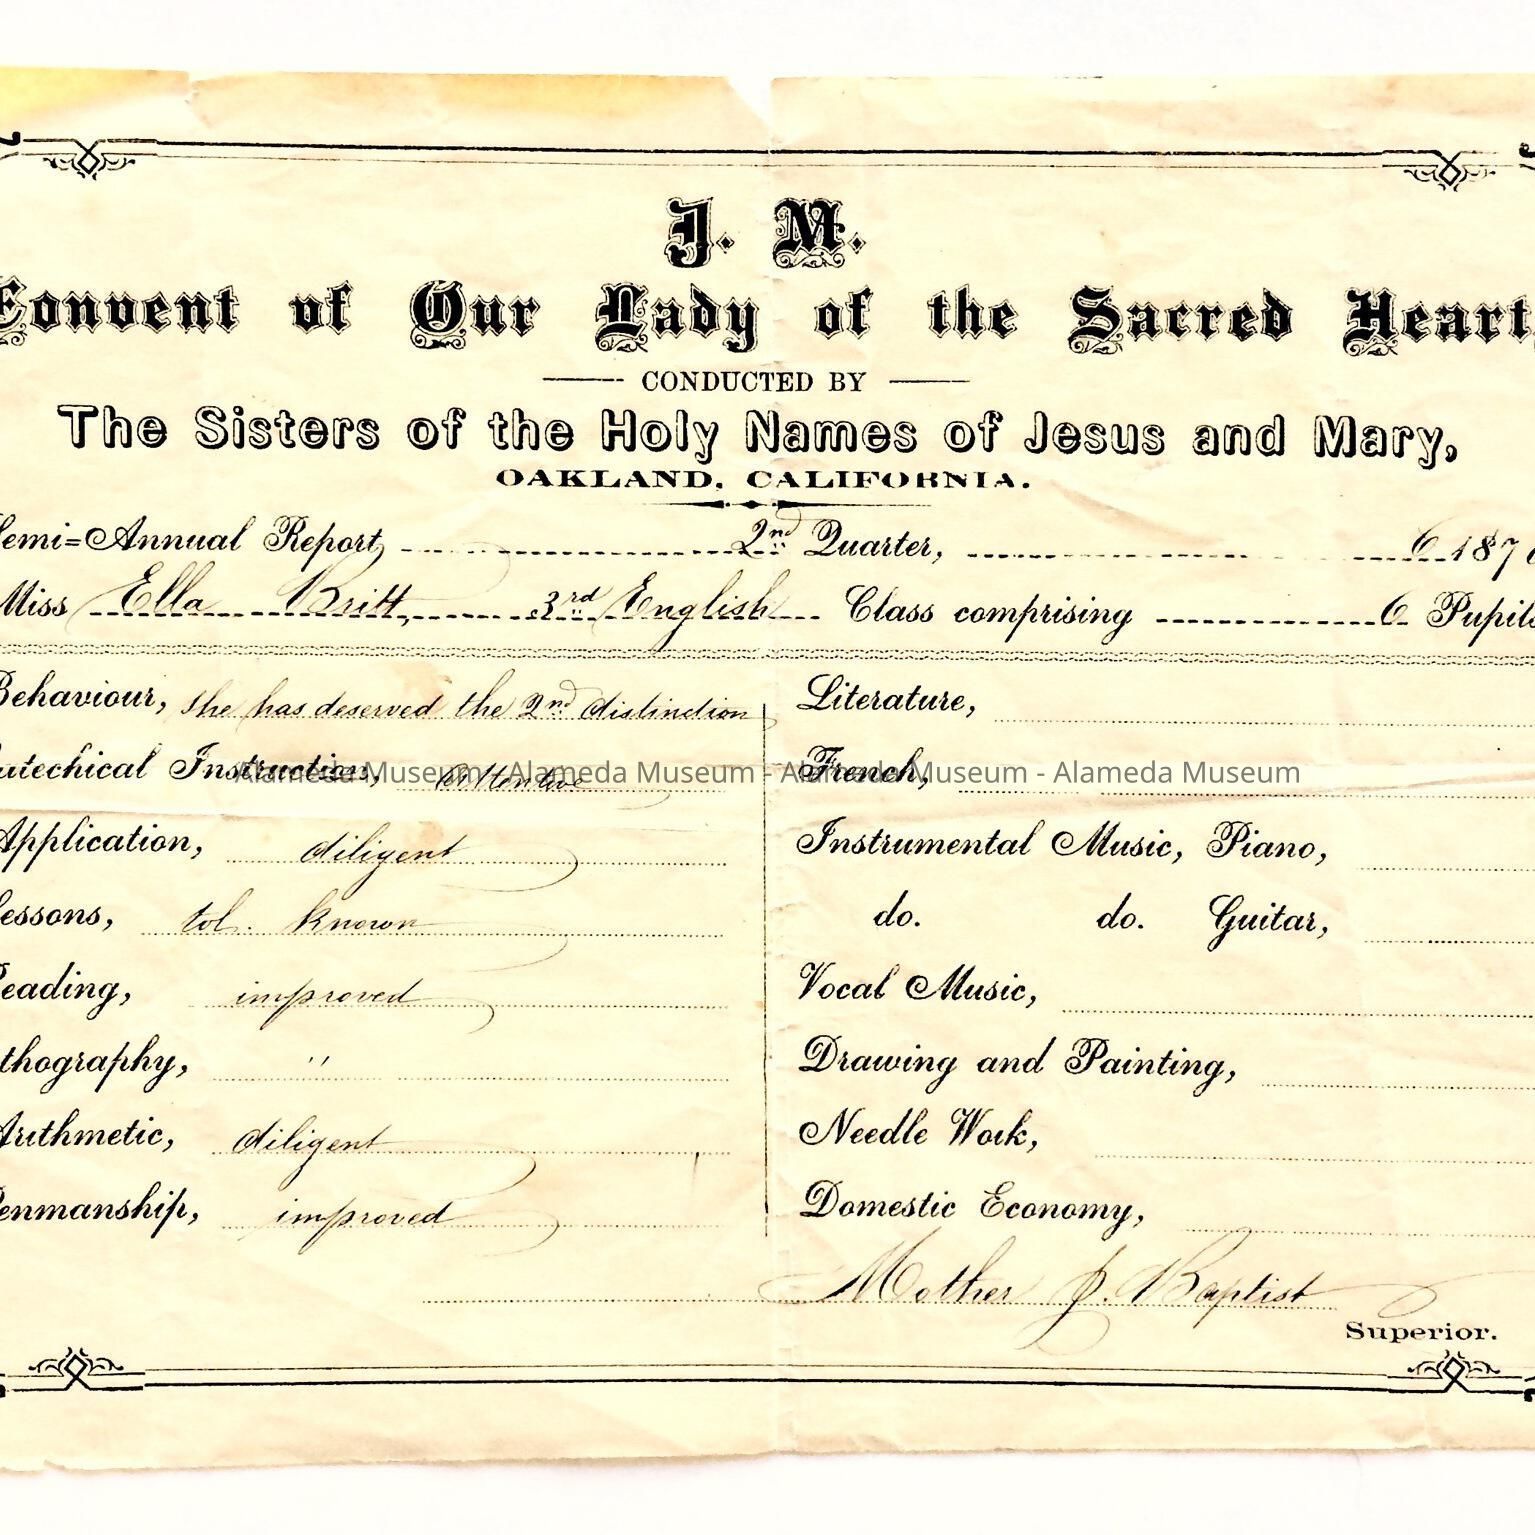 J. M.
Convent of Our Lady of the Sacred Heart,
CONDUCTED BY
The Sisters of the Holy Names of Jesus and Mary,
OAKLAND, CALIFORNIA.
Semi=Annual Report, 2nd Quarter, 187
Miss Ella Britt, 3rd English Class comprising 6 Pupils
Behaviour, she has deserved the 2nd distinction
Catechical Instruction, Attentive
Application, diligent
Lessons, tol. known
Reading, improved
Orthography, "
Arithmetic, diligent
Penmanship, improved
Literature,
French,
Instrumental Music, Piano,
do. do. Guitar,
Vocal Music,
Drawing and Painting,
Needle Work,
Domestic Economy,
Mother J. Baptist
Superior.
Alameda Museum - Alameda Museum - Alameda Museum - Alameda Museum